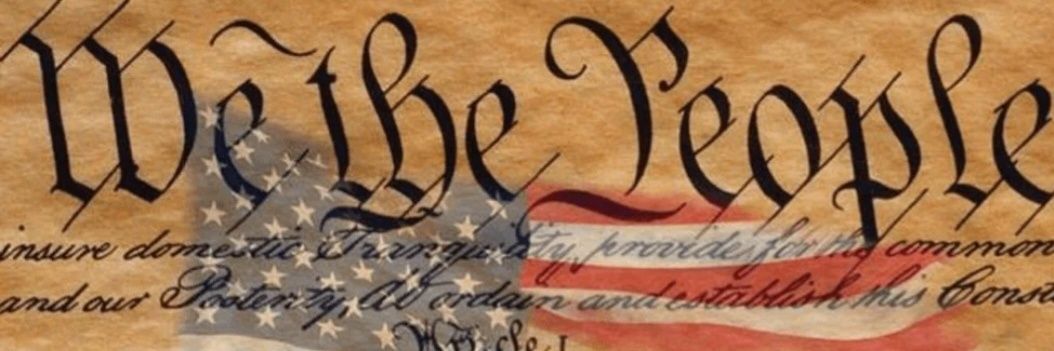 We the People
insure domestic Tranquility, provide for the common
and our Posterity, do ordain and establish this Const
Article I